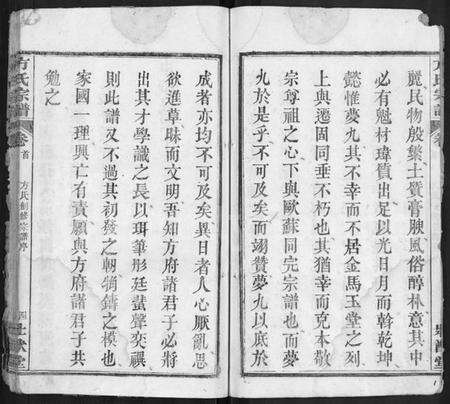 麗民物殷繁土質膏腴風俗醇樸意其中
必有魁材瑋質出足以光日月而斡乾坤
懿惟夔九其不幸而不居金馬玉堂之列
上與遷固同垂不朽也其猶幸而克本敬
宗尊祖之心下與歐蘇同完宗譜也而夔
九於是乎不可及矣而翊贊夔九以底於
成者亦均不可及矣異日者人心厭亂思
欲進草昧而文明吾知方府諸君子必將
出其才學識之長以珥筆彤廷蜚聲奕禩
則此譜又不過其初發之軔犅鑄之模也
家國一理興亡有責願與方府諸君子共
勉之
方氏宗譜
卷首
方氏創修宗譜序
四